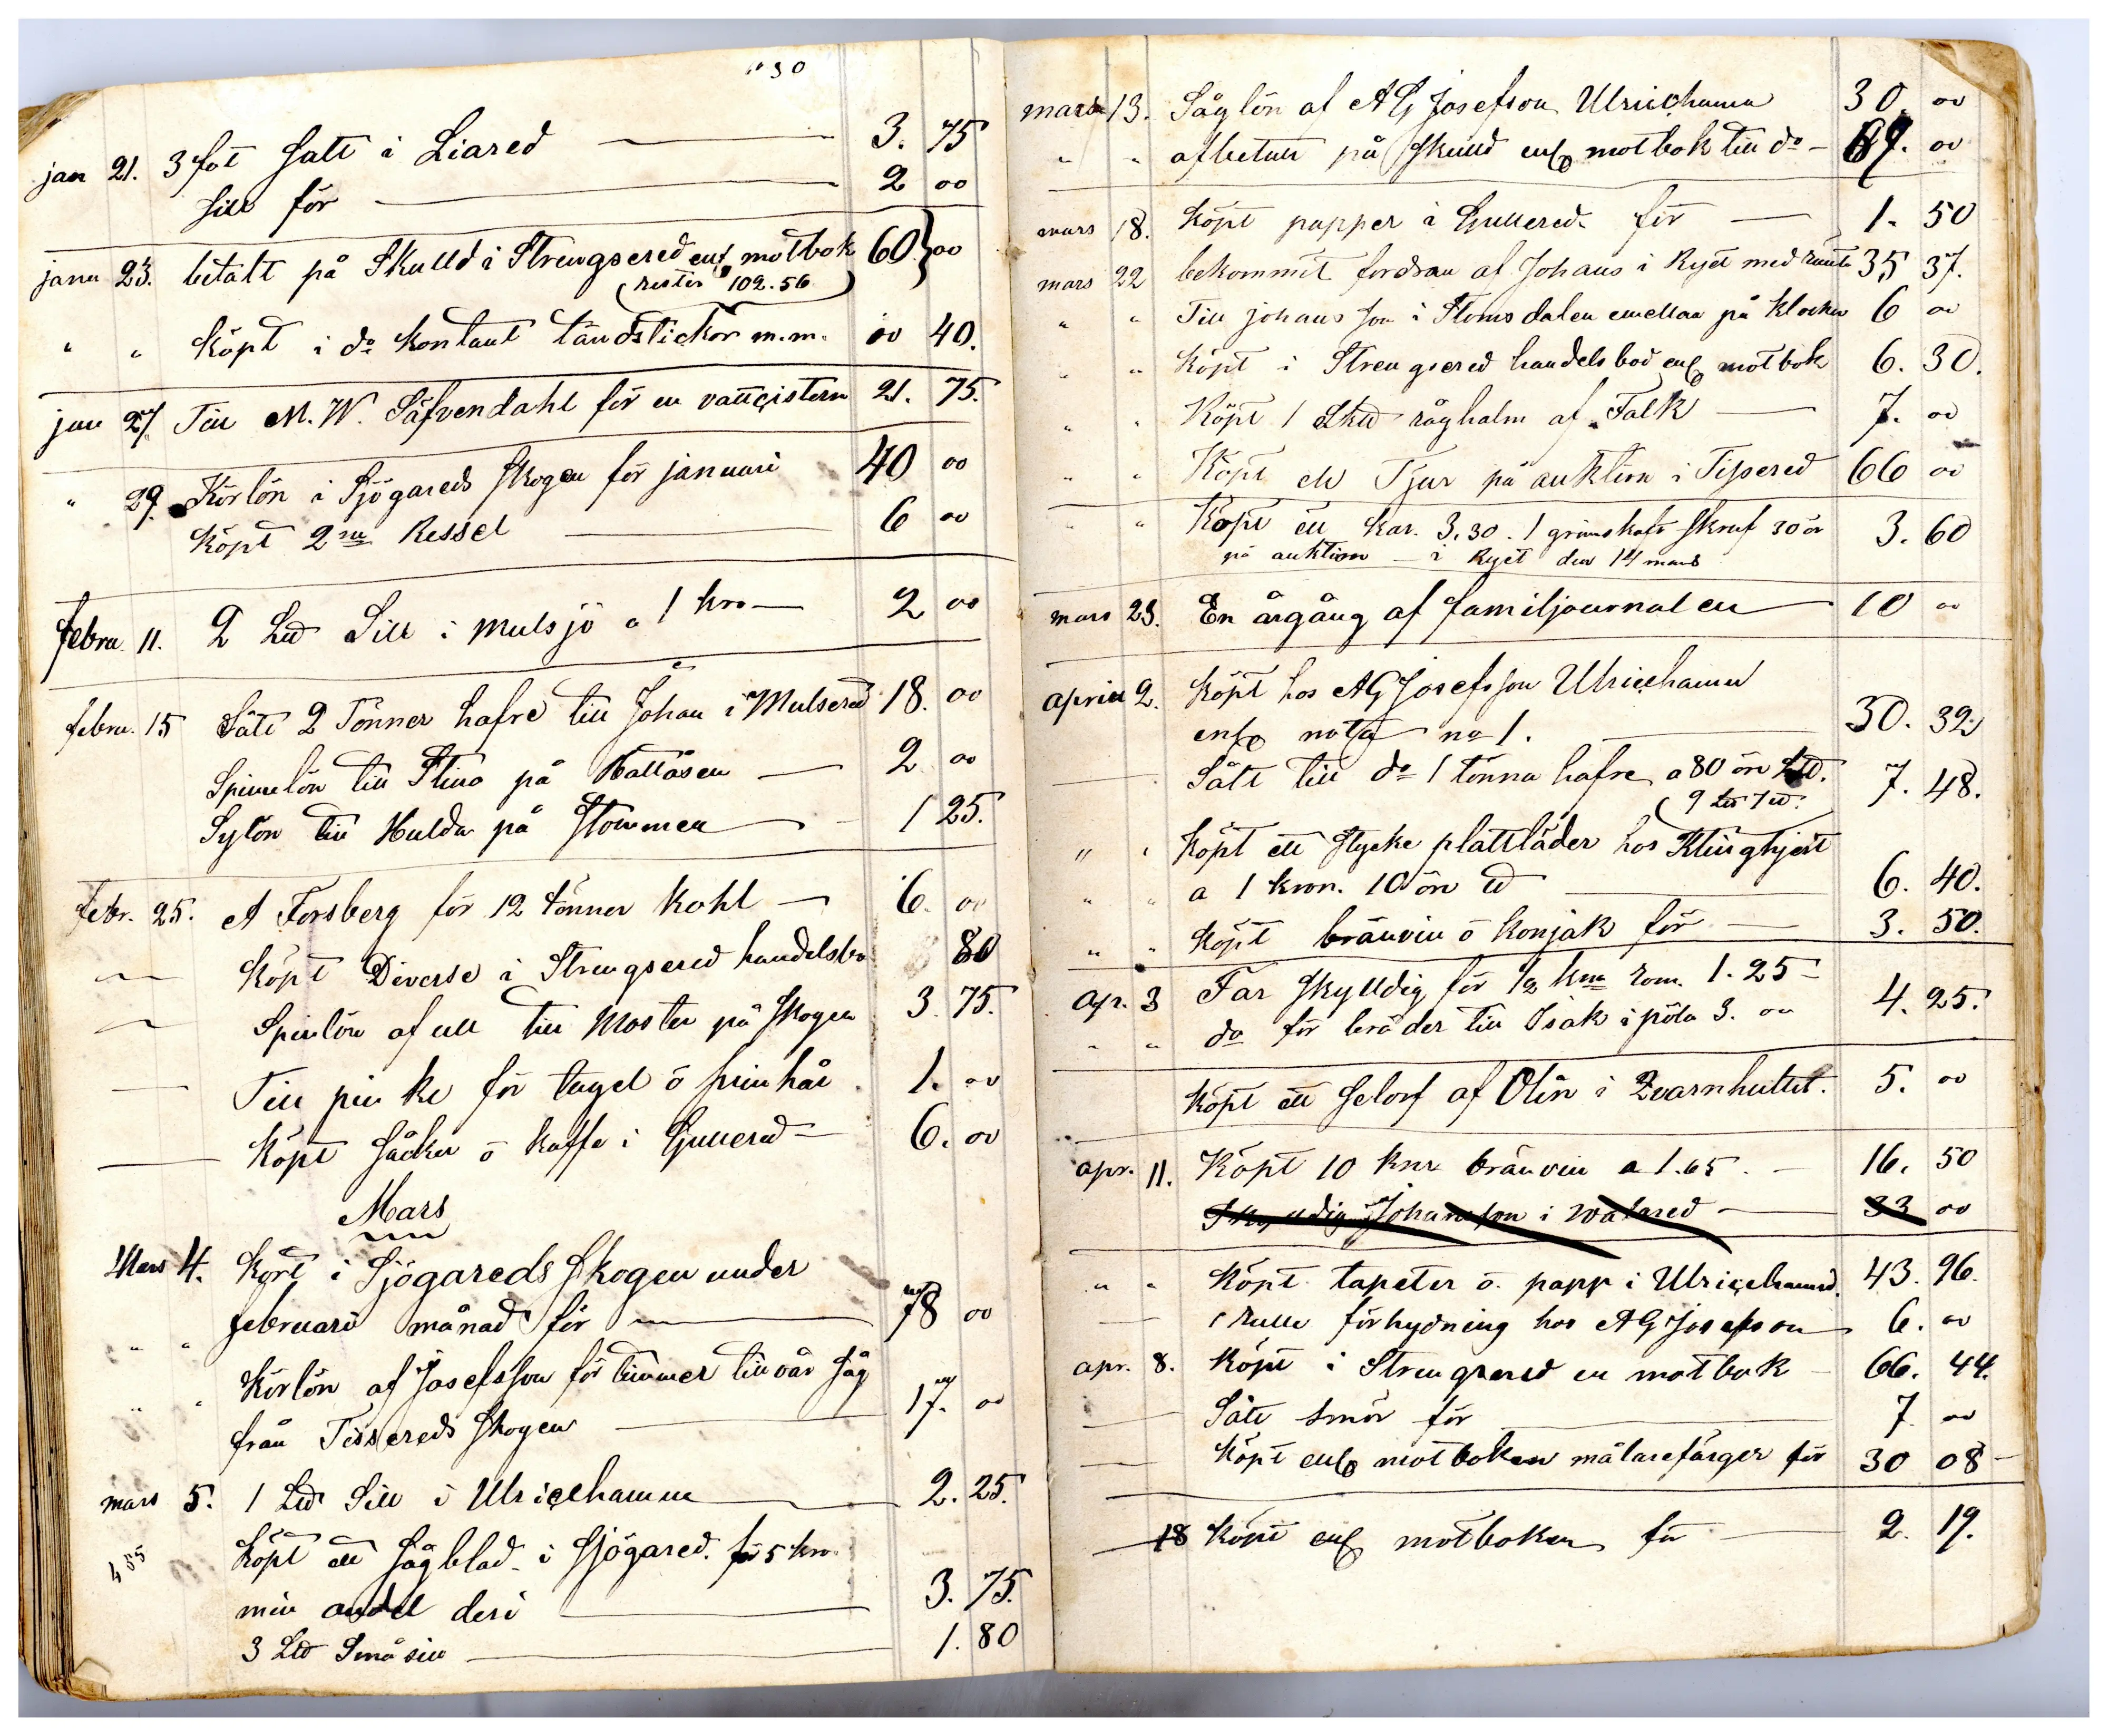 "30
jan 21. 3 fot Salt i Liared 3. 75
Sill för 2 00
janu 23. betalt på Skulld i Strengsered enl motbok 60 00
(rester 102.56)
" " köpt i do kontant tändstickor m.m. 00 40.
jan 27 Till M. W. Säfvendahl för en vattcistern 21. 75.
" 29. Körlön i Sjögareds Skogen för januari 40 00
köpt 2ne Kessel 6 00
febru. 11. 2 Lld Sill i Mulsjö a 1 kro 2 00
febru. 15 Sålt 2 Tönner hafre till Johan i Mulsered 18. 00
Spinnlön till Stina på Hallåsen 2 00
Sylön till Hulda på Stommen 1 25.
febr. 25. A Forsberg för 12 tönner kohl 6. 00
köpt Diverse i Strengsered handelsbo 80
Spinlön af ull till Moster på Skogen 3. 75.
Till pinke för tagel o svinhår 1. 00
köpt Såcker o kaffe i Gullered 6. 00
Mars
Mars 4. Kört i Sjögareds Skogen under
" " februari månad för 78 00
" " Körlön af Josefsson för timmer till vår såg
från Tissereds Skogen 17. 00
mars 5. 1 Lld Sill i Ulricehamn 2. 25.
455 köpt ett Sågblad i Sjögared. för 5 kro.
min andel deri 3. 75.
3 Lld Småsill 1. 80
mars 13. Såglön af A G Josefson Ulricehamn 30. 00
" " afbetalt på Skulld enl motbok till do 87. 00
mars 18. köpt papper i Gullered för 1. 50
mars 22 bekommit fordran af Johans i Ryet med ränta 35 37.
" " Till johansson i Stomsdalen emellan på klockor 6 00
" " köpt i Strengsered handelsbod enl motbok 6. 30.
" " Köpt 1 Skd råghalm af Falk 7. 00
" " Köpt en Tjur på auktion i Tissered 66 00
" " Köpt ett kar. 3.30. 1 grimskaft Skruf 30 ör 3. 60
på auktion i Ryet den 14 mars
mars 23. En årgång af familjournalen 10 00
april 2. köpt hos A G Josefsson Ulricehamn
enl nota no 1. 30. 32
Sålt till do 1 tönna hafre a 80 öre Lld. 7. 48.
(9 Lld 7 ld.
" " Köpt ett stycke plattläder hos Klinghjert
" " a 1 kron. 10 öre ld 6. 40.
" " köpt bränvin o konjak för 3. 50.
Apr. 3 Far Skylldig för 1/2 kna rom. 1. 25
" " do för bräder till Isak i pöla 3. 00 4. 25.
köpt ett Selorf af Olin i Qvarnhultet. 5. 00
apr. 11. Köpt 10 knr bränvin a 1.65. 16. 50
Skylldig Johansson i Walared 33 00
" " köpt tapeter o. papp i Ulricehamn. 43. 96.
1 rulle förhydning hos A G Josefson 6. 00
apr. 8. köpt i Strengsered en motbok 66. 44.
Sålt smör för 7 00
köpt enl motboken målarefärger för 30 08
18 köpt enl motboken för 2. 19.